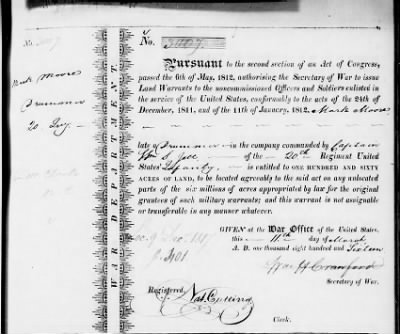 No. 3007
Mark Moore
Drummer
20 Infy.
WAR DEPARTMENT
Pursuant to the second section of an Act of Congress,
passed the 6th of May, 1812, authorising the Secretary of War to issue
Land Warrants to the noncommissioned Officers and Soldiers enlisted in
the service of the United States, conformably to the acts of the 24th of
December, 1811, and of the 11th of January, 1812, Mark Moore
late a Drummer in the company commanded by Captain
Wm S. of the 20th Regiment United
States Infantry is entitled to ONE HUNDRED AND SIXTY
ACRES OF LAND, to be located agreeably to the said act on any unlocated
parts of the six millions of acres appropriated by law for the original
grantees of such military warrants; and this warrant is not assignable
or transferable in any manner whatever.
GIVEN at the War Office of the United States,
this 11th day of March
A. D. one thousand eight hundred and Sixteen
Wm H Crawford
Secretary of War.
Registered
Clerk.